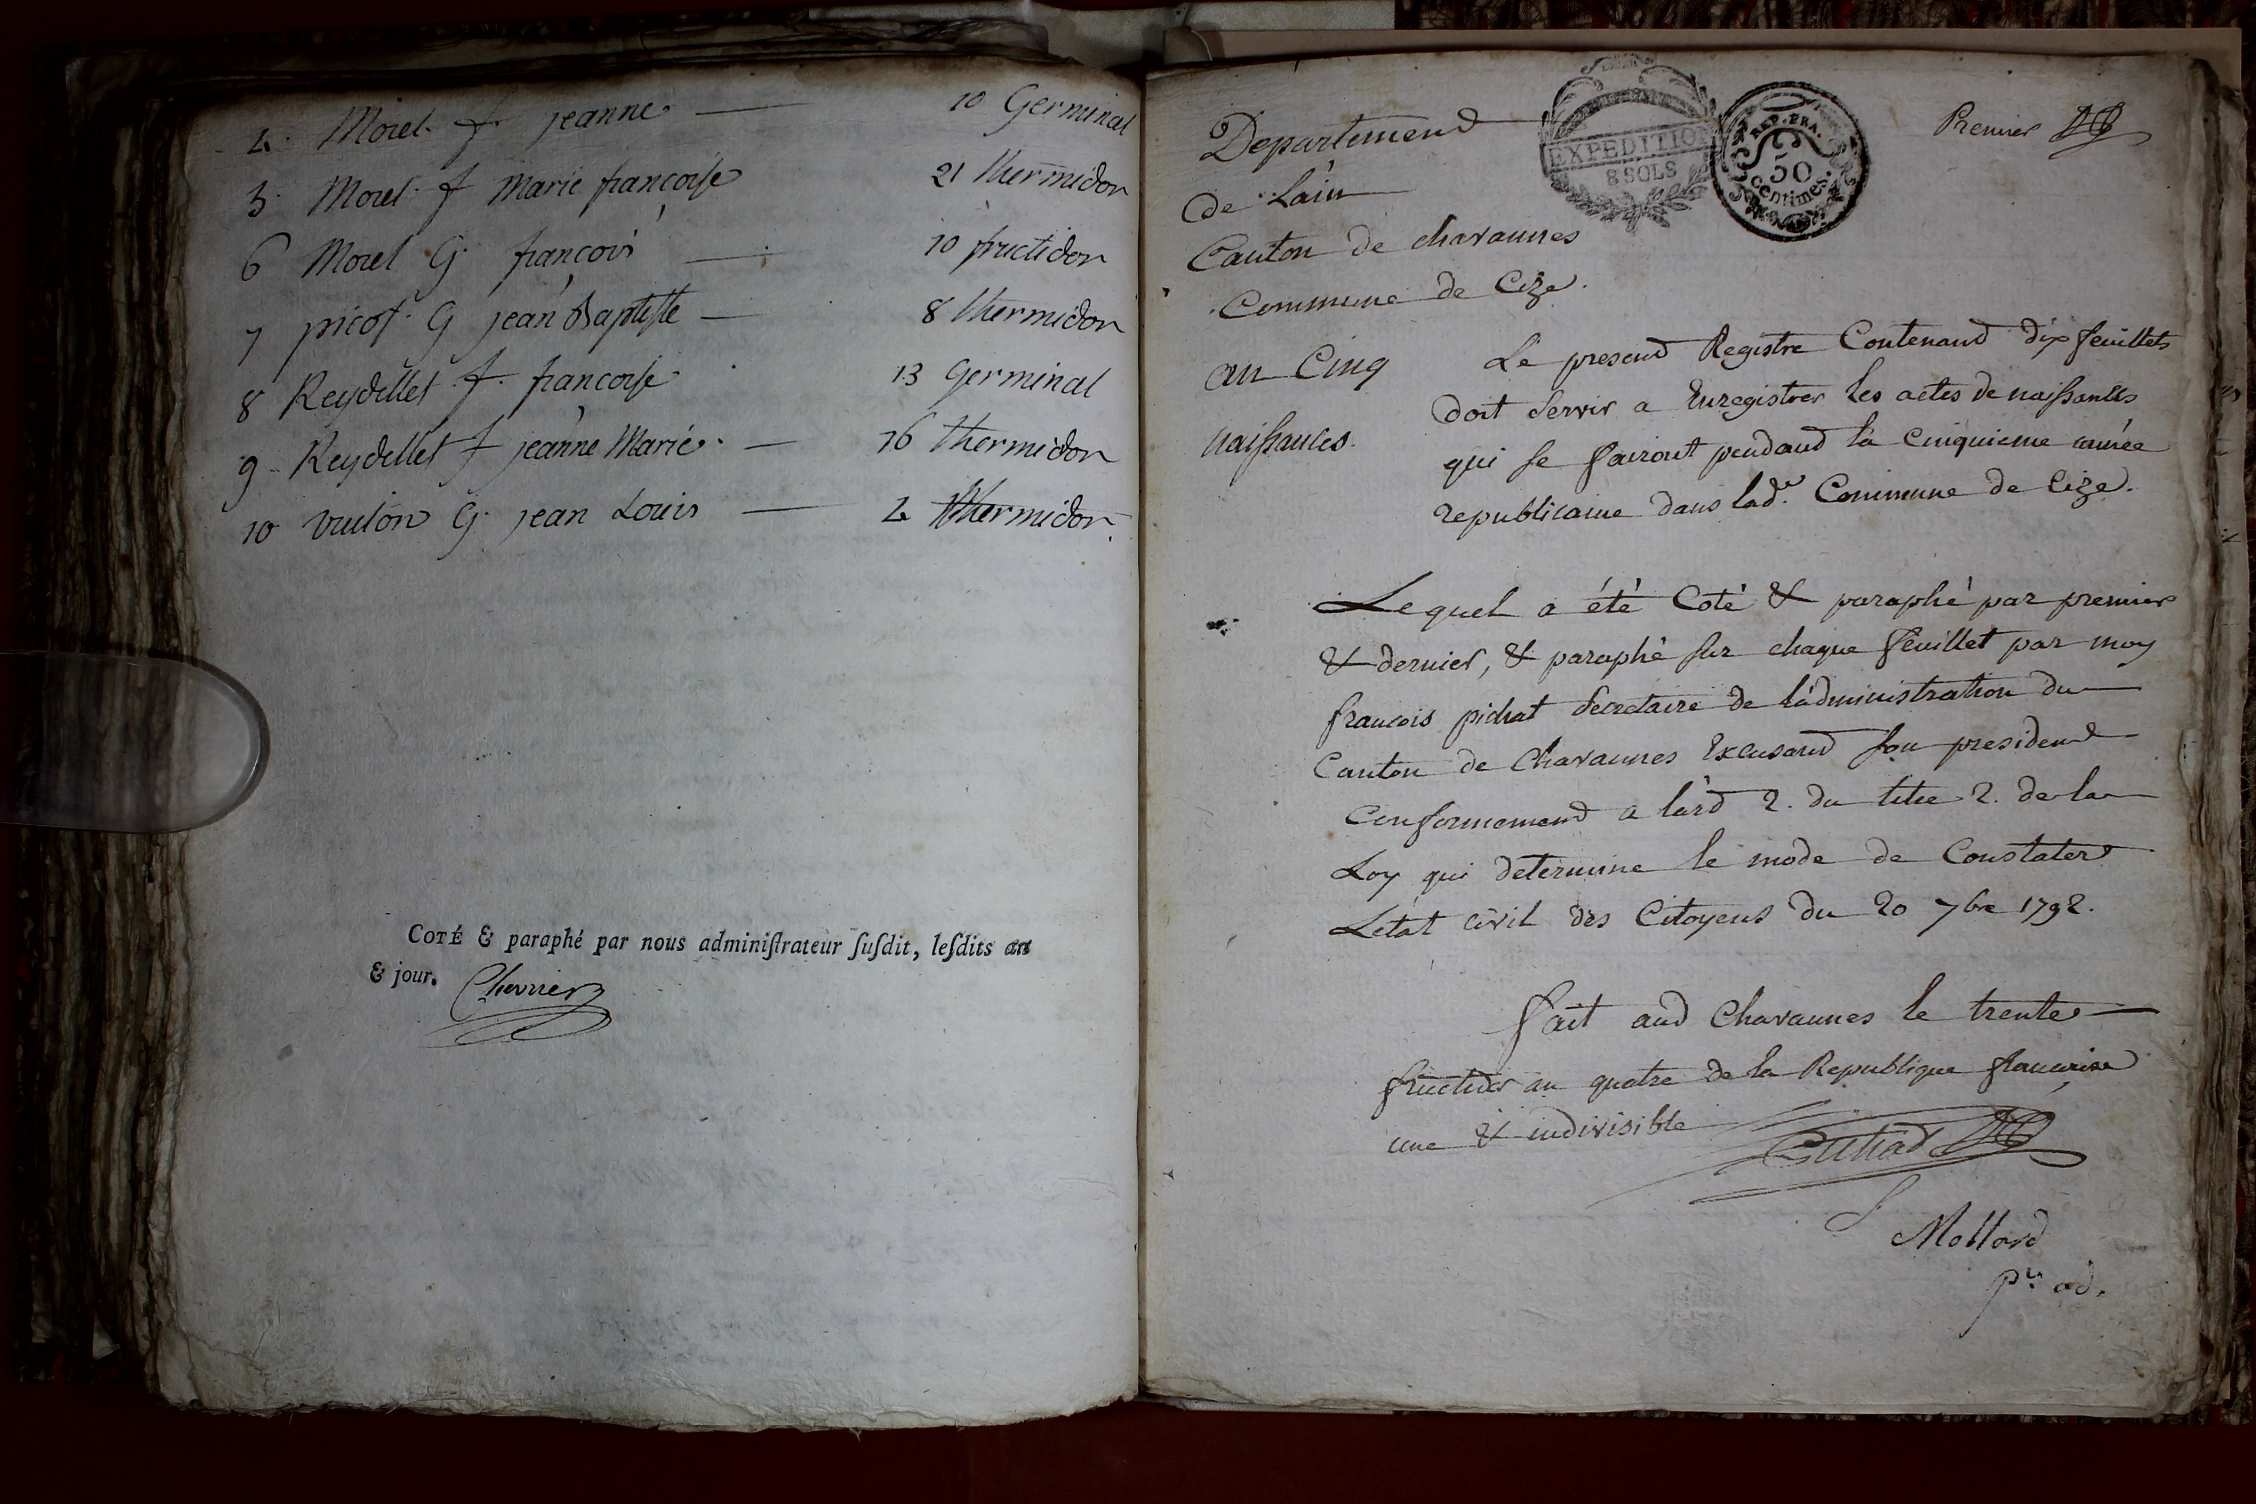 4. Morel. f. jeanne — 10 Germinal
5. Morel. f Marie françoise 21 thermidor
6 Morel G. françois — 10 fructidor
7 picot. G jean Baptiste — 8 thermidor
8 Reydellet. f. francoise. 13 Germinal
9 Reydellet f jeanne Marie. — 16 thermidor
10 vuilon G. jean Louis — 4 thermidor.
COTÉ & paraphé par nous adminiſtrateur ſuſdit, leſdits an
& jour. Chevrier
EXPEDITION
8 SOLS
REP. FRA.
50
centimes.
Premier
Departement
de Lain
Canton de chavannes
Commune de Cize.
an Cinq
naissances.
Le present Registre Contenand dix feuillets
doit servir a Enregistrer les actes de naissances
qui se fairont pendand la cinquieme année
republicaine dans lad.e Commune de Cize.
Lequel a été Coté & paraphé par premier
& dernier, & paraphé sur chaque feuillet par moy
francois pichat secretaire de ladministration du
Canton de Chavannes Excusand son president
Conformement a lard 2. du titre 2. de la
Loy qui determine le mode de Constater
Letat civil des Citoyens du 20 7bre 1792.
fait aud Chavannes le trente
fructidor an quatre de la Republique francaise
une & indivisible
Mollard